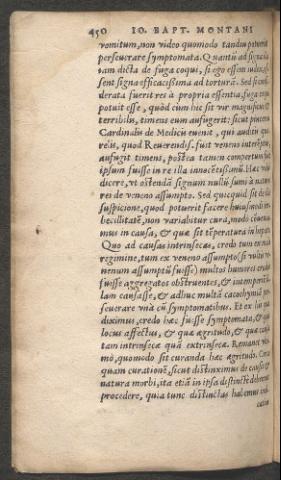 450 IO. BAPT. MONTANI
vomitum, non video quomodo tandiu potuerit
perseuerare symptomata. Quantũ ad signa
tam dicta de fuga coqui, si ego essem iudex,
sent signa efficacissima ad torturã. Sed si
derata fuerit res à propria essentia, fuga
potuit esse, quòd cùm hic sit vir magnificus &
terribilis, timens eum aufugerit: sicut
Cardinalis de Medicis euenit, qui audiui
relis, quod Reuerendis. fuit venens
aufugit timens, postea tamen compertum
ipsum fuisse in re illa innocẽtissimũ. Hæc
dicere, vt ostendã signum nullũ sumi à
rei de veneno assumpto. Sed quicquid sit de
suspicione, quod poterit facere huiusmodi
becillitatẽ, non variabitur cura, modo
mus in causa, & quæ sit tẽperatura in hepate
Quo ad causas intrinsecas, credo tum ex
regimine, tum ex veneno assumpto (si
nenum assumptũ fuisse) multos humores
fuisse aggregatos obstruentes, &
lam causasse, & adhuc multã cacochymiã
seuerare vnà cũ symptomatibus. Et ex his
diximus, credo hæc fuisse symptomata, &
locus affectus, & quæ ægritudo, & quæ
tam intrinseca quã extrinseca. Remanet
mò, quomodo sit curanda hæc ægritudo.
quam curationẽ, sicut distinximus de causa &
natura morbi, ita etiã in ipsa distinctè
procedere, quia tunc distinctas habemus